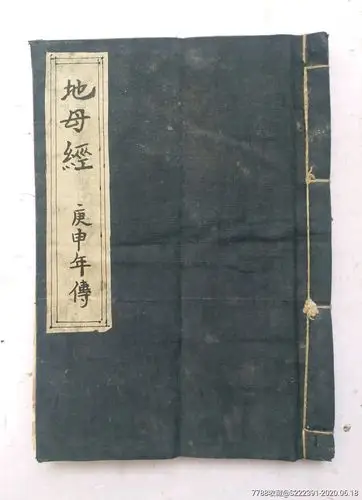 地母經
庚申年傳
7788收藏@S222391-2020.06.18